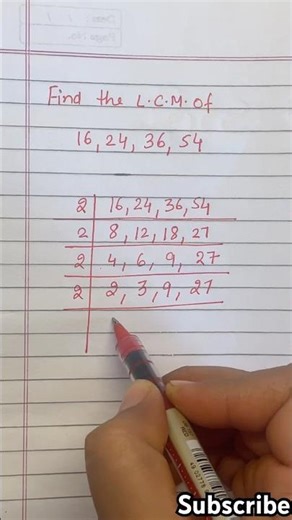 Find the L.C.M. of
16, 24, 36, 54
2 | 16, 24, 36, 54
2 | 8, 12, 18, 27
2 | 4, 6, 9, 27
2 | 2, 3, 9, 27
Subscribe